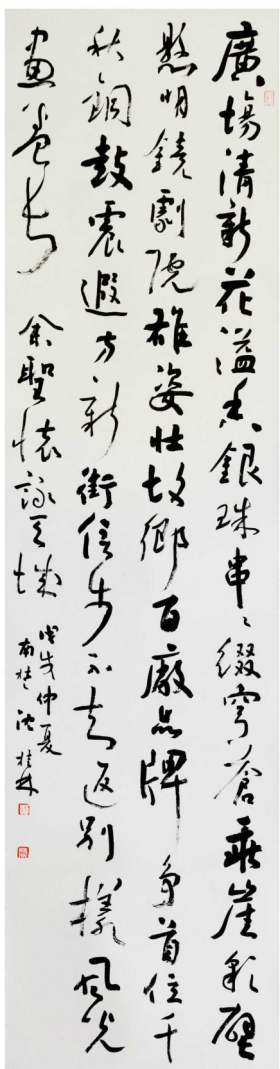 廣場清新花溢香銀珠串々綴穹蒼垂崖彩壁
懸明鏡劇院雄姿壯故鄉百廠品牌爭首位千
秋銅鼓震遐方新街信步不知返別樣風光
畫卷長 余聖懷詠天
戊戌仲夏
南楚 沈桂林